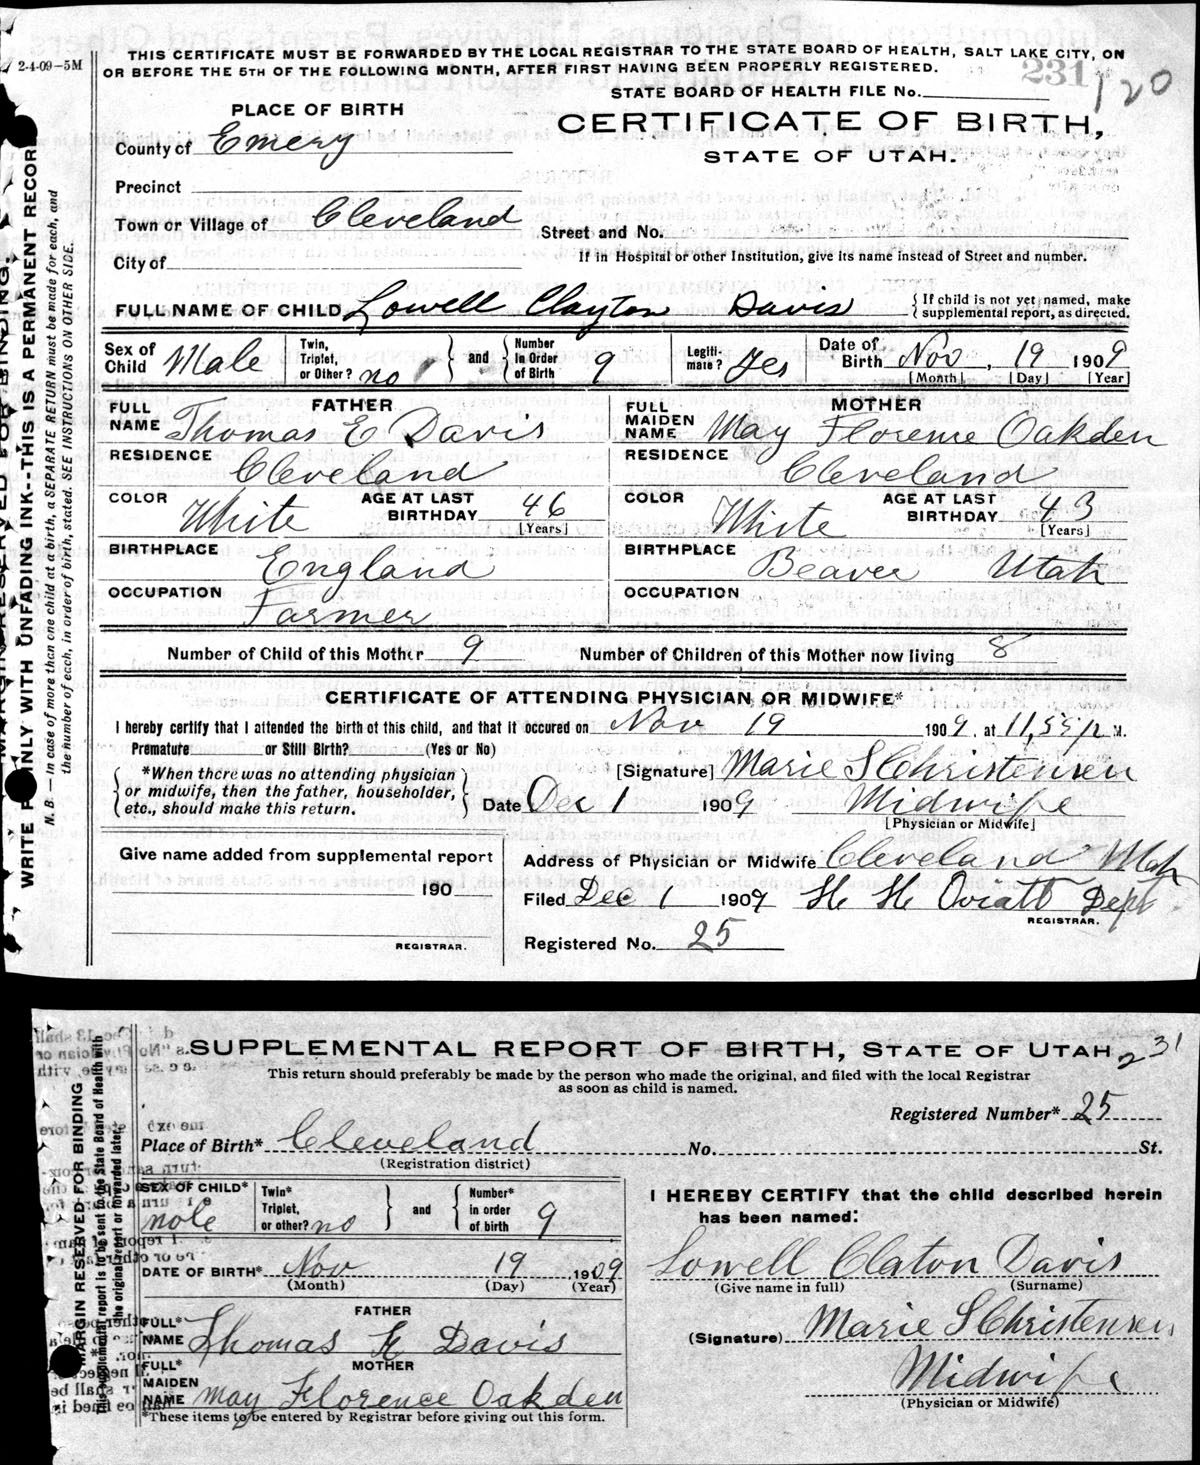 THIS CERTIFICATE MUST BE FORWARDED BY THE LOCAL REGISTRAR TO THE STATE BOARD OF HEALTH, SALT LAKE CITY, ON
2-4-09-5M
OR BEFORE THE 5TH OF THE FOLLOWING MONTH, AFTER FIRST HAVING BEEN PROPERLY REGISTERED.
231
120
STATE BOARD OF HEALTH FILE No.
PLACE OF BIRTH
CERTIFICATE OF BIRTH,
County of Emery
STATE OF UTAH.
Precinct
Town or Village of Cleveland
Street and No.
City of
If in Hospital or other Institution, give its name instead of Street and number.
FULL NAME OF CHILD Lowell Clayton Davis
If child is not yet named, make
supplemental report, as directed.
Sex of Child Male
Twin, Triplet, or Other? no
and
Number in Order of Birth 9
Legitimate? Yes
Date of Birth Nov, 19 1909
[Month] [Day] [Year]
FATHER
FULL NAME Thomas E Davis
MOTHER
FULL MAIDEN NAME May Florence Oakden
RESIDENCE Cleveland
RESIDENCE Cleveland
COLOR White AGE AT LAST BIRTHDAY 46 [Years]
COLOR White AGE AT LAST BIRTHDAY 43 [Years]
BIRTHPLACE England
BIRTHPLACE Beaver Utah
OCCUPATION Farmer
OCCUPATION
Number of Child of this Mother 9 Number of Children of this Mother now living 8
CERTIFICATE OF ATTENDING PHYSICIAN OR MIDWIFE*
I hereby certify that I attended the birth of this child, and that it occured on Nov 19 1909, at 11,55 p M.
Premature or Still Birth? (Yes or No)
*When there was no attending physician
or midwife, then the father, householder,
etc., should make this return.
[Signature] Marie S Christensen
Date Dec 1 1909 Midwife
[Physician or Midwife]
Give name added from supplemental report
190
REGISTRAR.
Address of Physician or Midwife Cleveland Utah
Filed Dec 1 1909 H H Oviatt Dept
REGISTRAR.
Registered No. 25
MARGIN RESERVED FOR BINDING.
WRITE ONLY WITH UNFADING INK--THIS IS A PERMANENT RECORD
N. B. — In case of more than one child at a birth, a SEPARATE RETURN must be made for each, and
the number of each, in order of birth, stated. SEE INSTRUCTIONS ON OTHER SIDE.
SUPPLEMENTAL REPORT OF BIRTH, STATE OF UTAH
231
This return should preferably be made by the person who made the original, and filed with the local Registrar
as soon as child is named.
Registered Number* 25
Place of Birth* Cleveland No. St.
(Registration district)
SEX OF CHILD* male
Twin* Triplet, or other? no
and
Number* in order of birth 9
DATE OF BIRTH* Nov 19 1909
(Month) (Day) (Year)
FATHER
FULL* NAME Thomas E Davis
MOTHER
FULL* MAIDEN NAME May Florence Oakden
*These items to be entered by Registrar before giving out this form.
I HEREBY CERTIFY that the child described herein
has been named:
Lowell Claton Davis
(Give name in full) (Surname)
(Signature) Marie S Christensen
Midwife
(Physician or Midwife)
MARGIN RESERVED FOR BINDING
*This supplemental report is to be sent to the State Board of Health with
the original report or forwarded later.